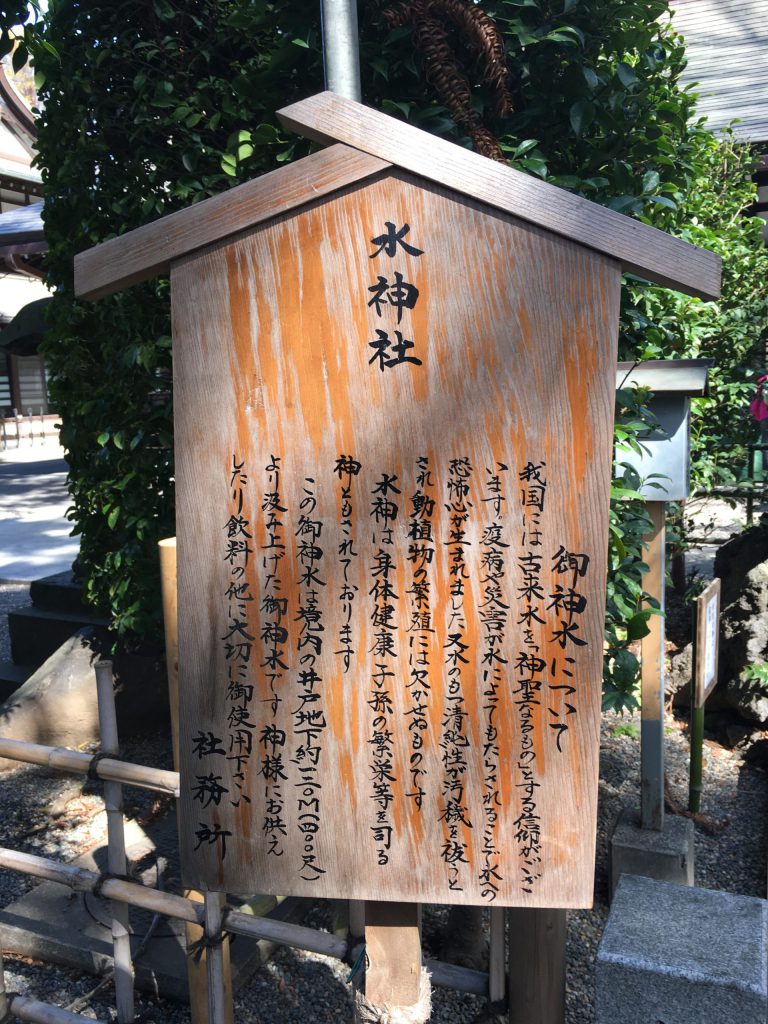 水神社
御神水について
我国には古来水を「神聖なるもの」とする信仰がござ
います。疫病や災害が水によってもたらされることで水への
恐怖心が生まれました。又水のもつ清純性が汚穢を祓うと
され動植物の繁殖には欠かせぬものです
水神は身体健康 子孫の繁栄等を司る
神ともされております
この御神水は境内の井戸地下約一二〇M(四〇〇尺)
より汲み上げた御神水です 神様にお供え
したり飲料の他に大切に御使用下さい
社務所